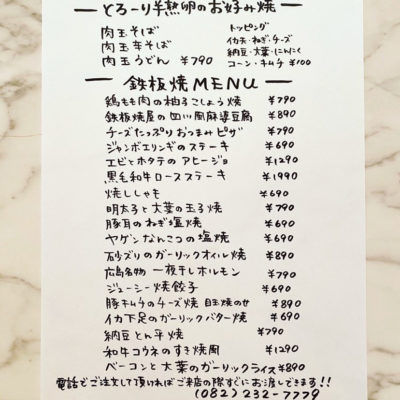 とろーり半熟卵のお好み焼
肉玉そば
肉玉辛そば
肉玉うどん ¥790
トッピング
イカ天・ねぎ・チーズ
納豆・大葉・にんにく
コーン・キムチ ¥100
鉄板焼MENU
鶏もも肉の柚子こしょう焼 ¥790
鉄板焼屋の四川風麻婆豆腐 ¥890
チーズたっぷりおつまみピザ ¥790
ジャンボエリンギのステーキ ¥690
エビとホタテのアヒージョ ¥1290
黒毛和牛ロースステーキ ¥1990
焼ししゃも ¥690
明太子と大葉の玉子焼 ¥790
豚耳のねぎ塩焼 ¥690
ヤゲンなんこつの塩焼 ¥690
砂ズリのガーリックオイル焼 ¥890
広島名物 一夜干しホルモン ¥790
ジューシー焼餃子 ¥690
豚キムチのチーズ焼 目玉焼のせ ¥890
イカ下足のガーリックバター焼 ¥690
納豆とん平焼 ¥790
和牛コウネのすき焼風 ¥1290
ベーコンと大葉のガーリックライス ¥890
電話でご注文して頂ければご来店の際すぐにお渡しできます!!
(082) 232-7779